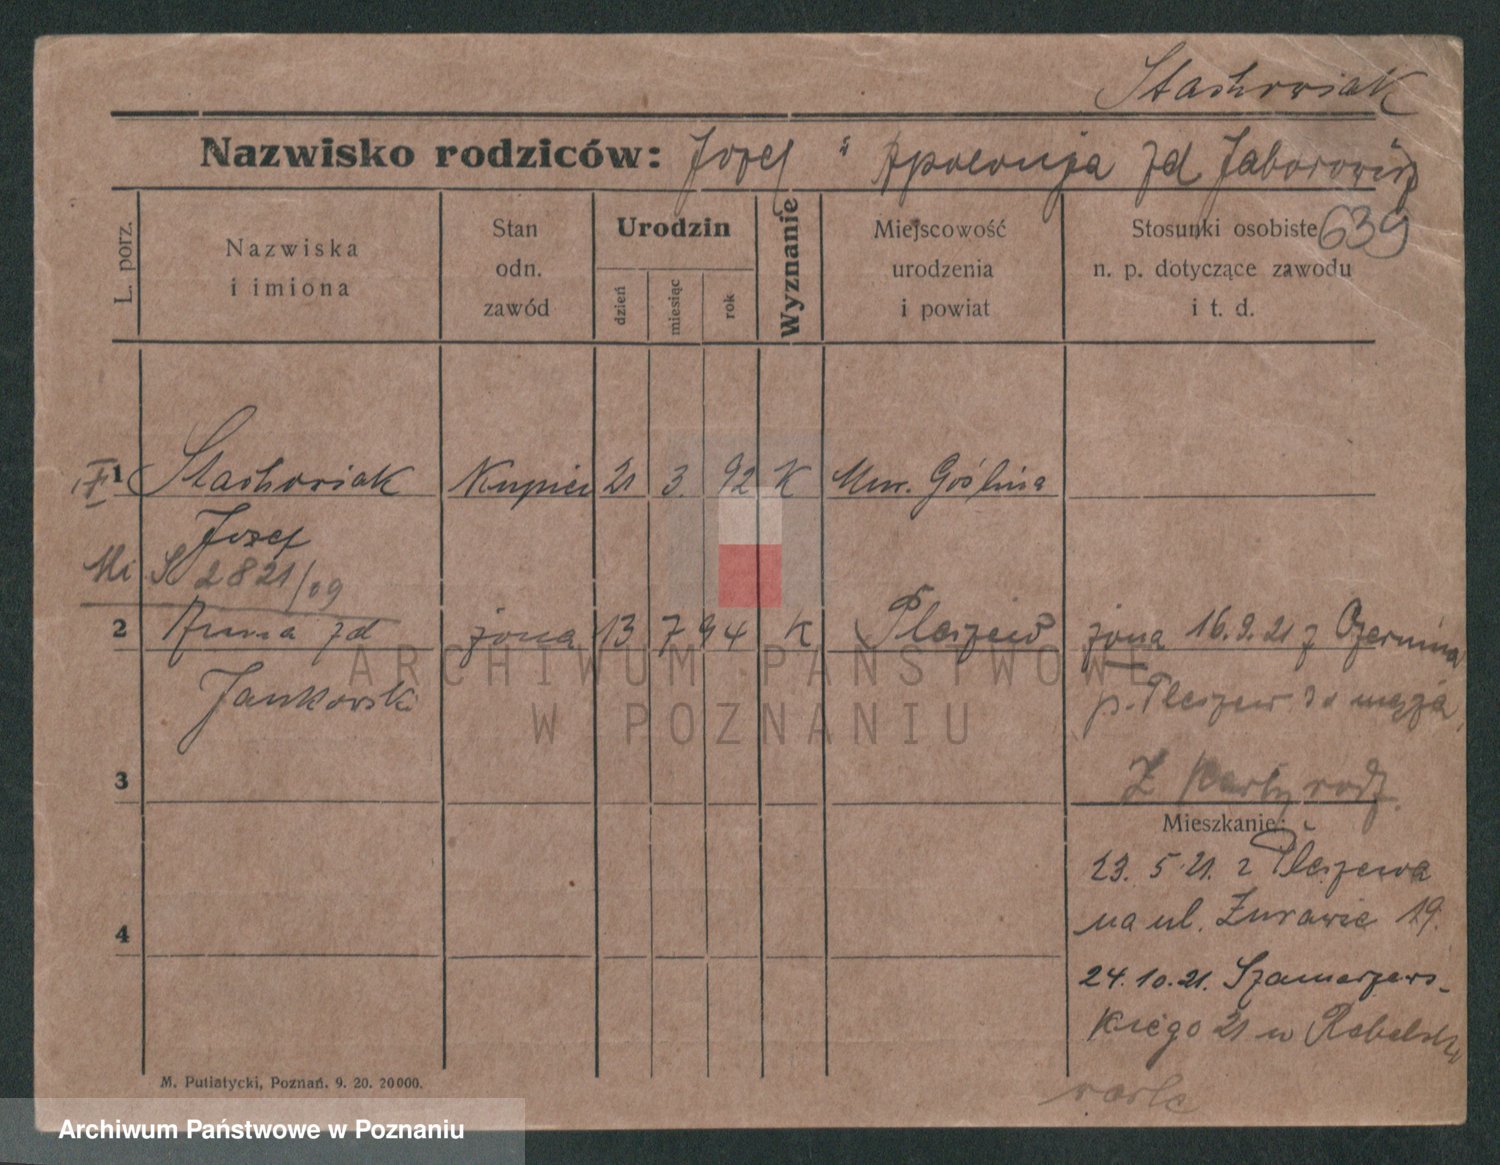 Stachowiak
Nazwisko rodziców: Jozef i Apolonja zd Jaborowicz
639
L. porz.
Nazwiska
i imiona
Stan
odn.
zawód
Urodzin
dzień
miesiąc
rok
Wyznanie
Miejscowość
urodzenia
i powiat
Stosunki osobiste
n. p. dotyczące zawodu
i t. d.
1 Stachowiak Kupiec 21 3. 92 K Mur. Goślina
Jozef
2821/09
2 Anna zd żona 13 7 94 K Pleszew żona 16.9.21 z Czermina
Jankowski p. Pleszew do męża
Z karty rodz.
3
Mieszkanie:
23. 5 21. z Pleszewa
na ul. Żurawie 19.
4
24. 10. 21. Szamarzews-
kiego 21 w
M. Putiatycki, Poznań. 9. 20. 20000.
ARCHIWUM PAŃSTWOWE
W POZNANIU
Archiwum Państwowe w Poznaniu